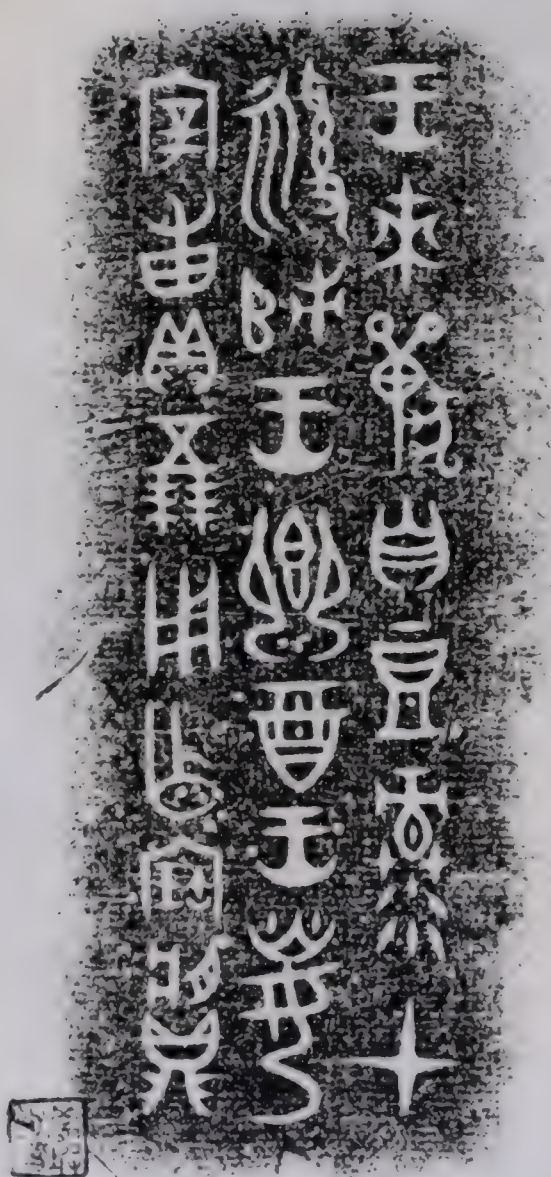 王來獸自豆彔才
師王鄉酉王光
宰甫貝五朋用乍寶䵼